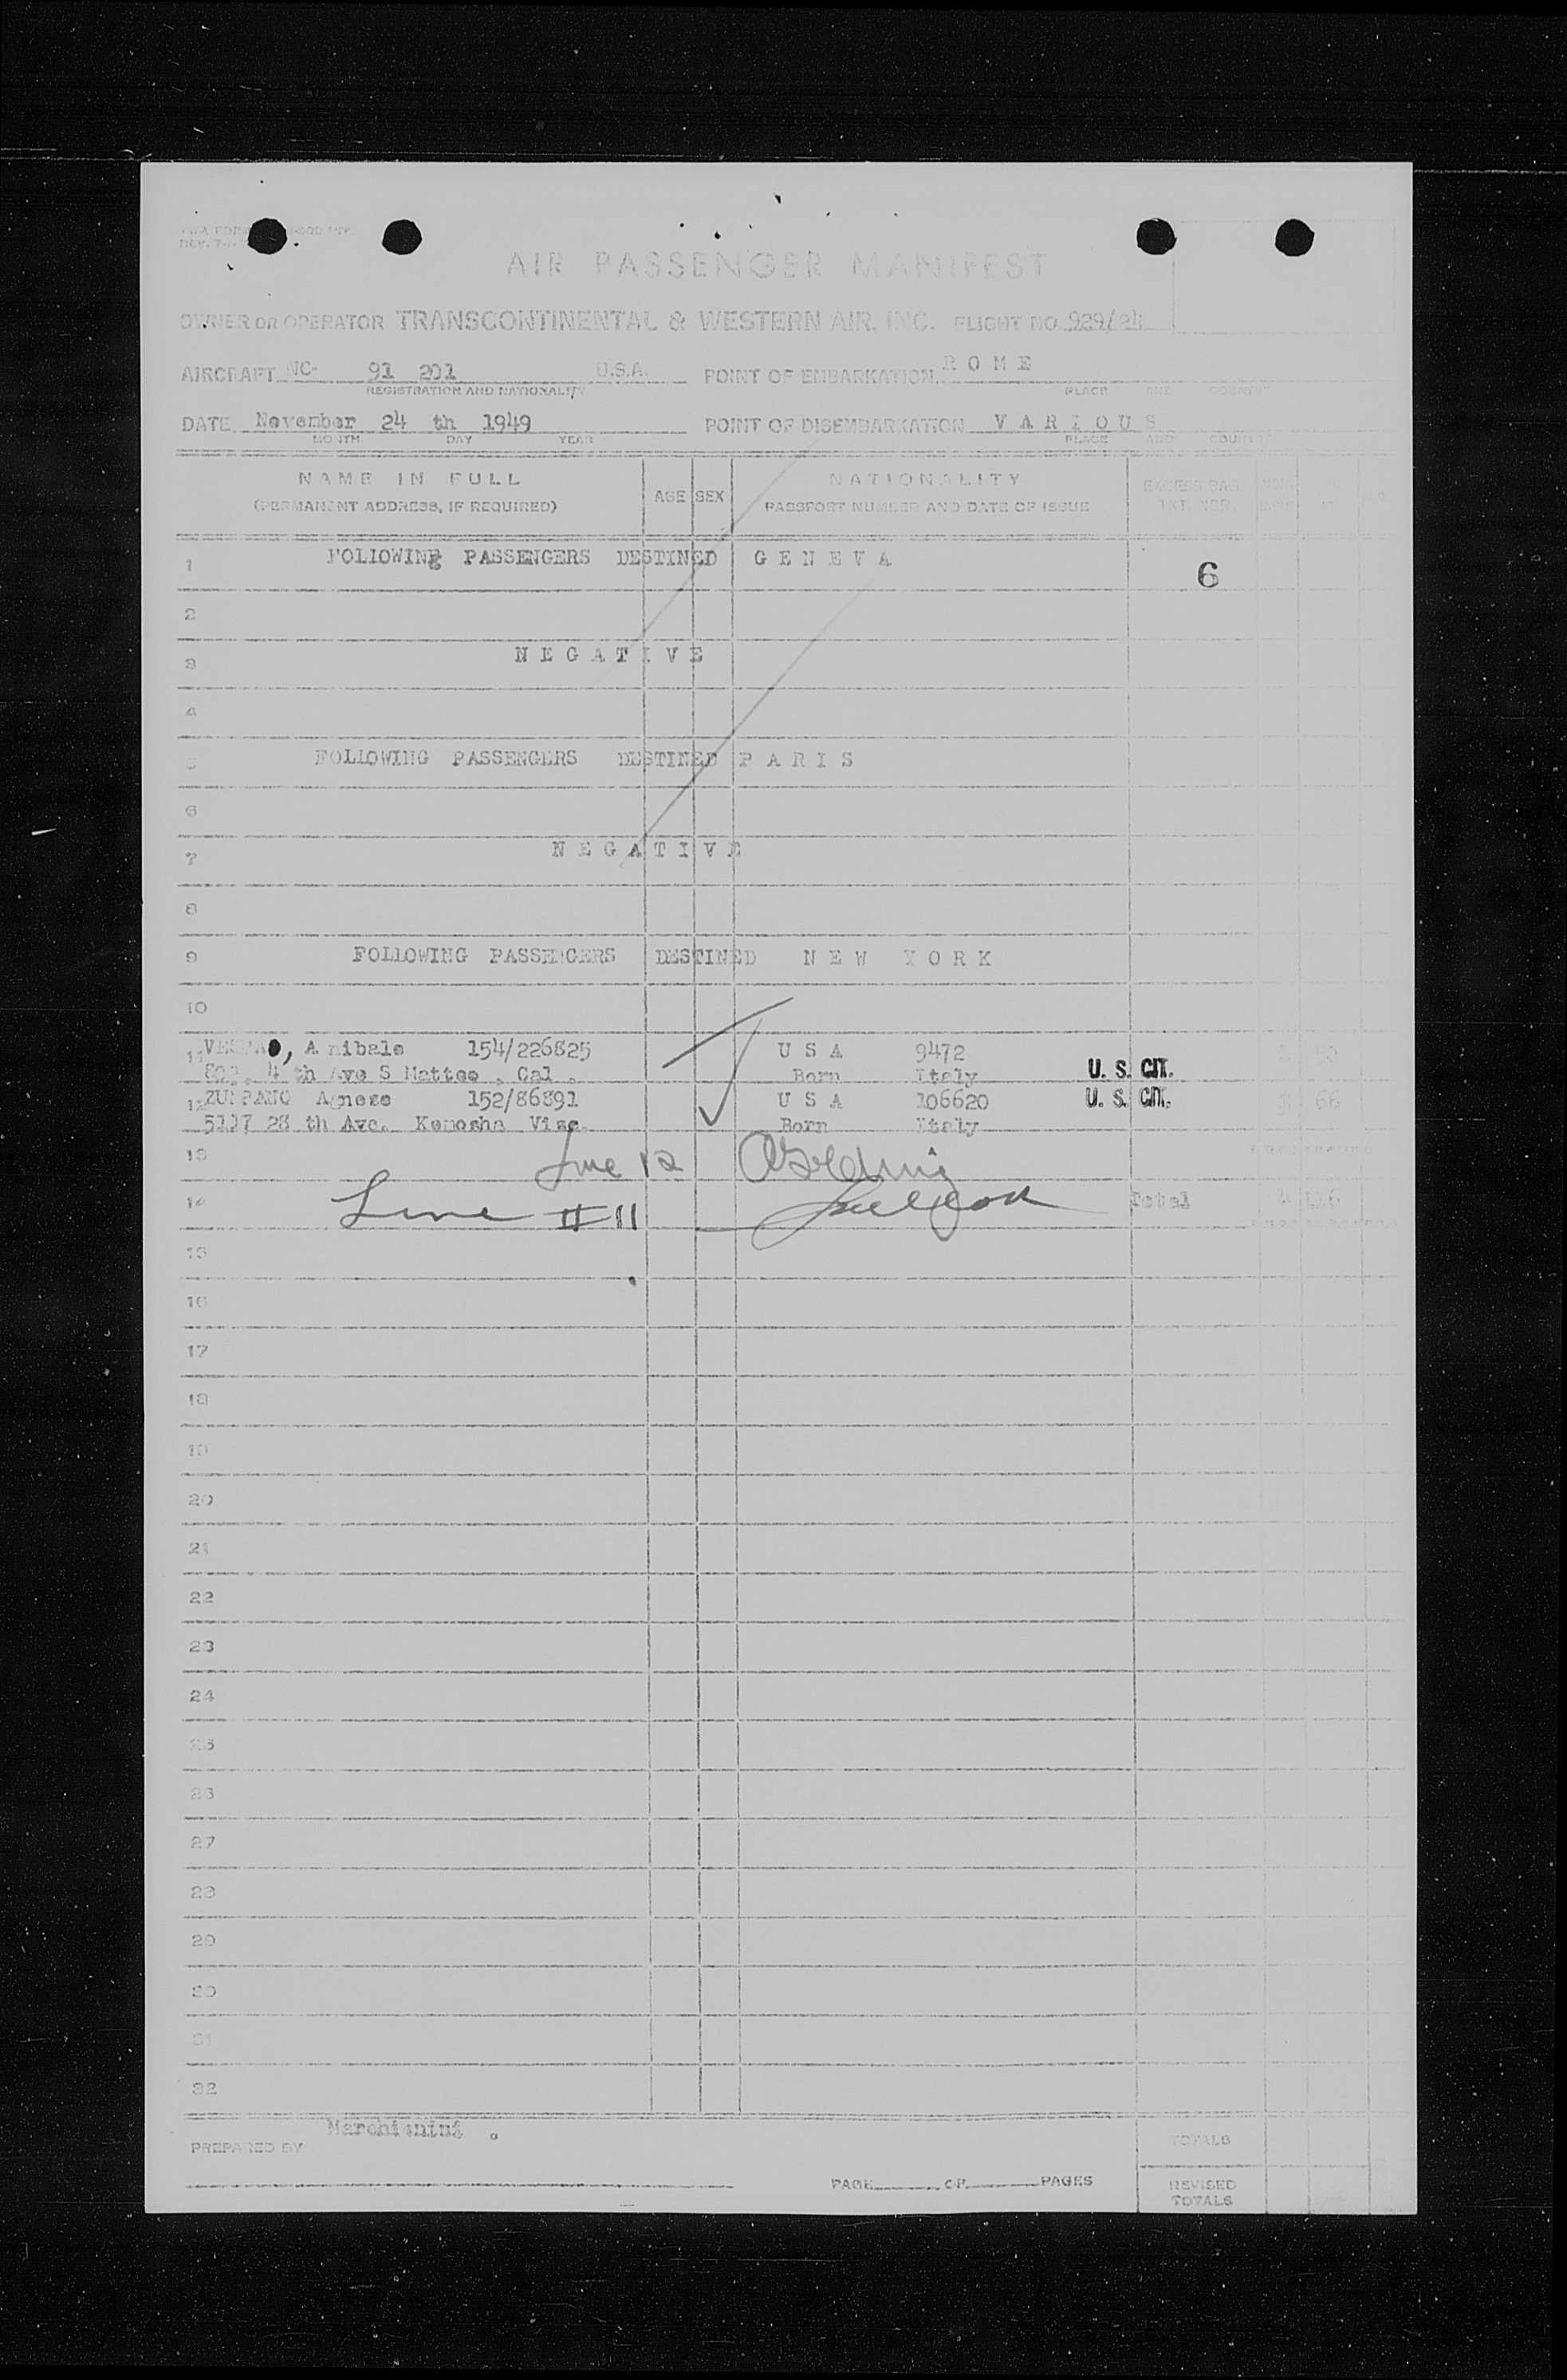 AIR PASSENGER MANIFEST
OWNER OR OPERATOR TRANSCONTINENTAL & WESTERN AIR, INC. FLIGHT NO. 929/24
AIRCRAFT NC- 91 201 U.S.A. POINT OF EMBARKATION R O M E
REGISTRATION AND NATIONALITY PLACE AND COUNTRY
DATE November 24 th 1949 POINT OF DISEMBARKATION V A R I O U S
MONTH DAY YEAR PLACE AND COUNTRY
NAME IN FULL AGE SEX NATIONALITY EXCESS BAG.
(PERMANENT ADDRESS, IF REQUIRED) PASSPORT NUMBER AND DATE OF ISSUE TKT. NBR.
1 FOLLOWING PASSENGERS DESTINED G E N E V A 6
2
3 N E G A T I V E
4
5 FOLLOWING PASSENGERS DESTINED P A R I S
6
7 N E G A T I V E
8
9 FOLLOWING PASSENGERS DESTINED N E W Y O R K
10
11 A nibale 154/226825 U S A 9472
4 th Ave S Matteo . Cal . Born Italy U. S. CIT.
12 Agnese 152/86891 U S A 106620 U. S. CIT. 66
5117 28 th Ave. Kenosha Wisc. Born Italy
13 Line 12
14 Line # 11 Total
15
16
17
18
19
20
21
22
23
24
25
26
27
28
29
30
31
32
PREPARED BY Marchionini . TOTALS
PAGE OF PAGES REVISED
TOTALS